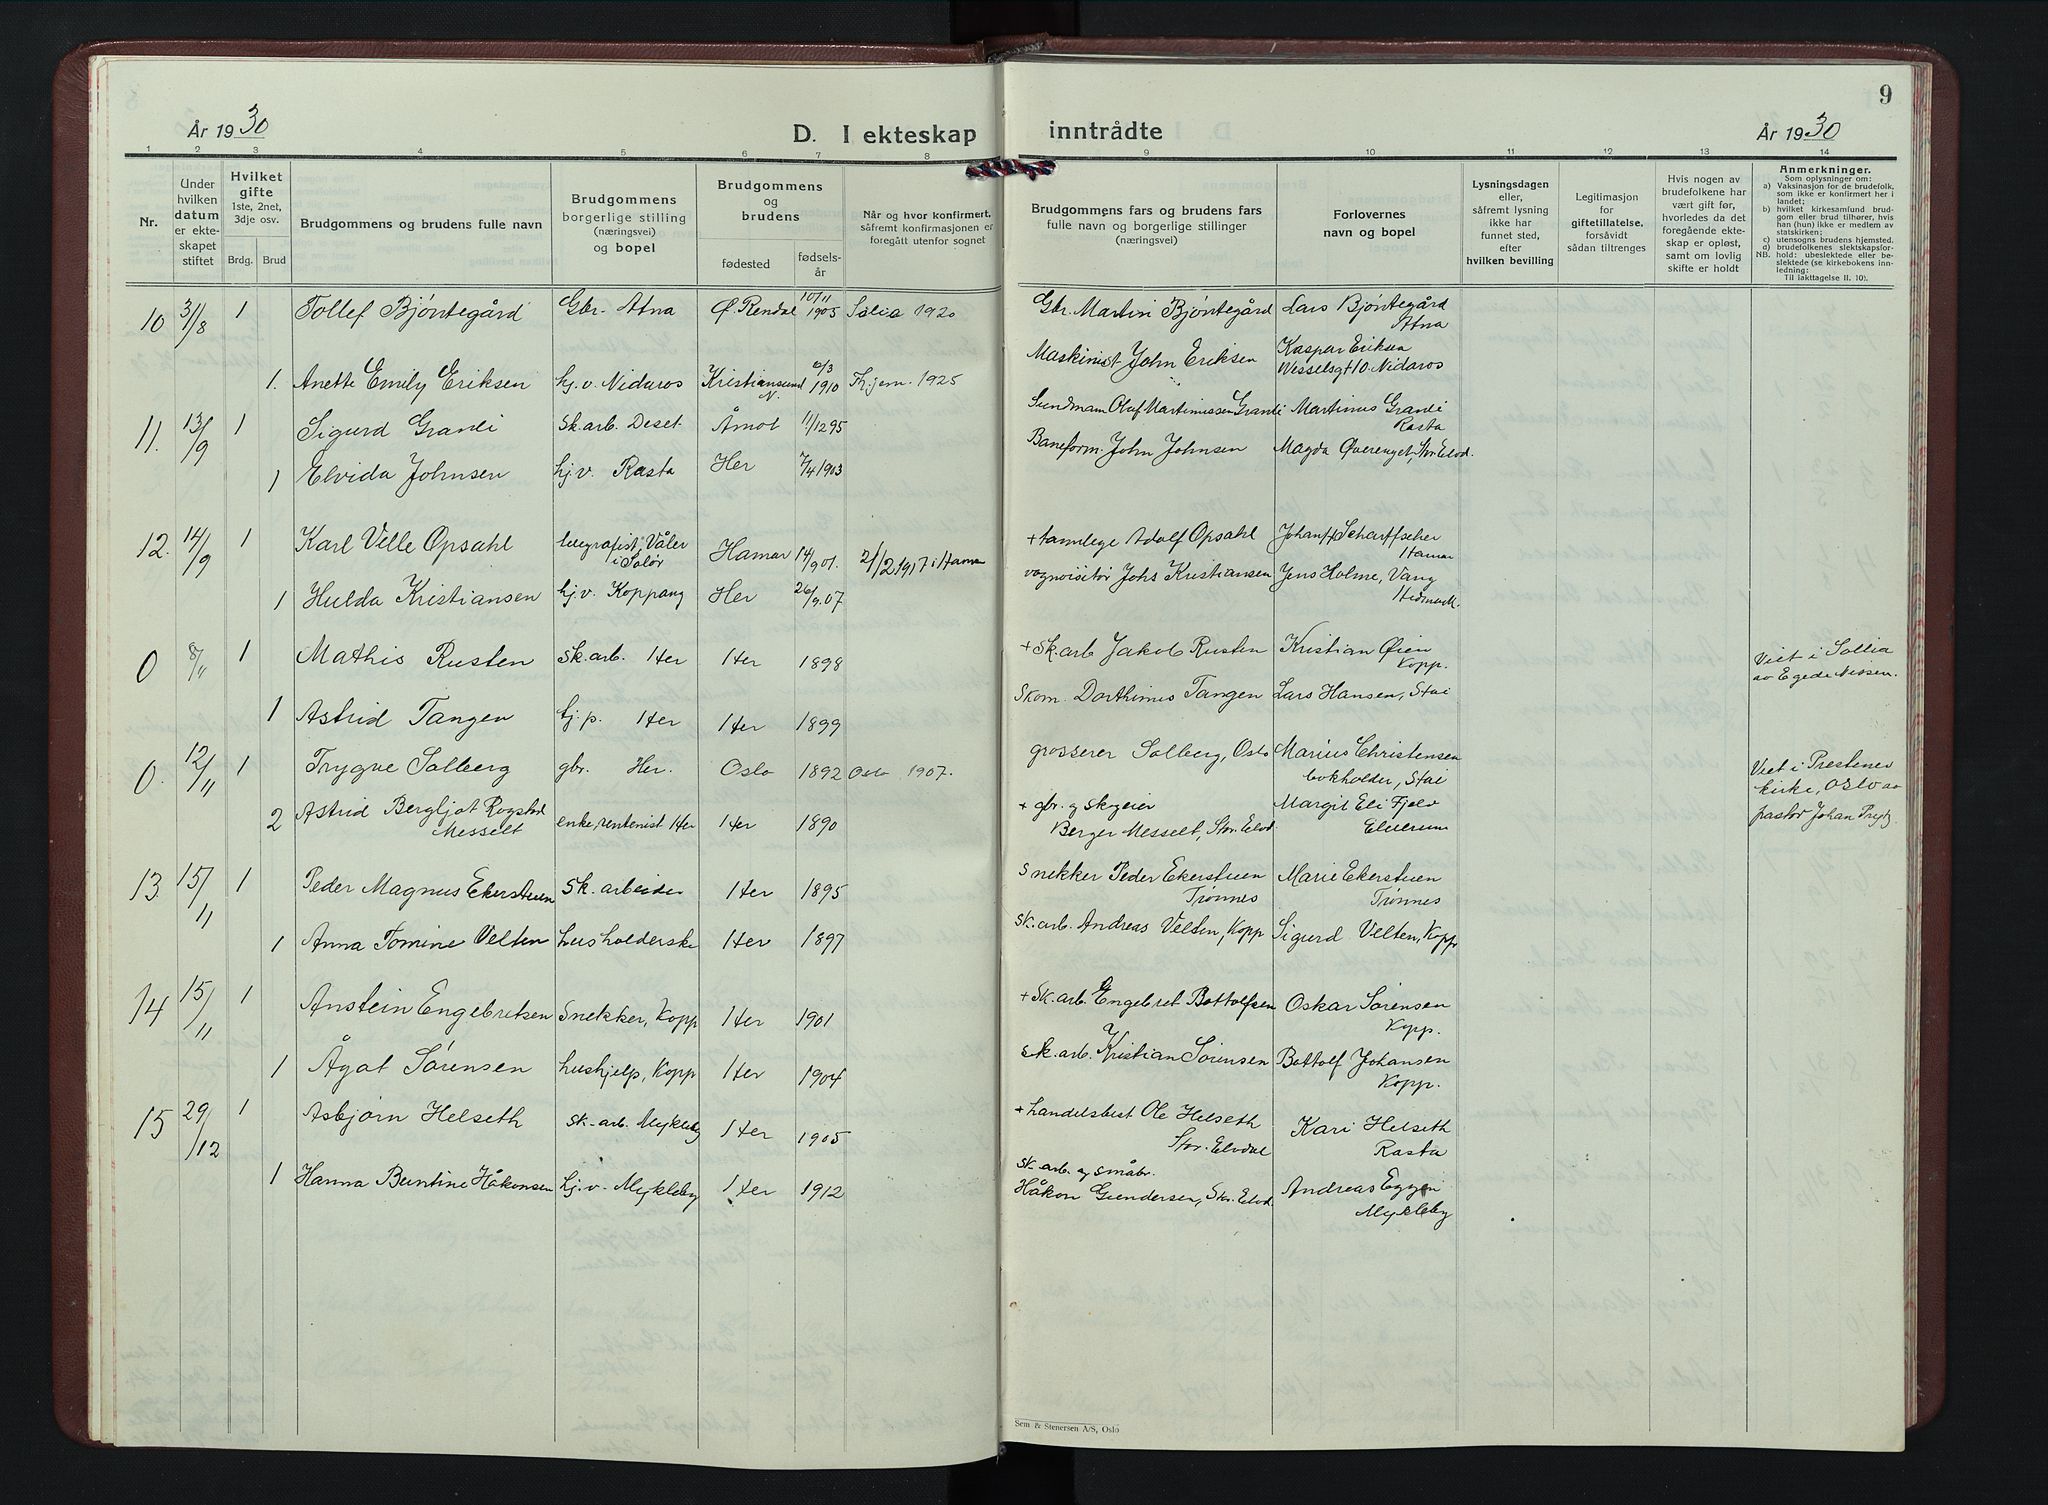 9
År 1930
D. I ekteskap inntrådte
År 1930
1 2 3 4 5 6 7 8 9 10 11 12 13 14
Nr.
Under hvilken datum er ekteskapet stiftet
Hvilket gifte 1ste, 2net, 3dje osv.
Brdg. Brud
Brudgommens og brudens fulle navn
Brudgommens borgerlige stilling (næringsvei) og bopel
Brudgommens og brudens
fødested
fødsels-år
Når og hvor konfirmert, såfremt konfirmasjonen er foregått utenfor sognet
Brudgommens fars og brudens fars fulle navn og borgerlige stillinger (næringsvei)
Forlovernes navn og bopel
Lysningsdagen eller, såfremt lysning ikke har funnet sted, efter hvilken bevilling
Legitimasjon for giftetillatelse, forsåvidt sådan tiltrenges
Hvis nogen av brudefolkene har vært gift før, hvorledes da det foregående ekteskap er opløst, samt om lovlig skifte er holdt
Anmerkninger.
Som oplysninger om:
a) Vaksinasjon for de brudefolk, som ikke er konfirmert her i landet;
b) hvilket kirkesamfund brudgom eller brud tilhører, hvis han (hun) ikke er medlem av statskirken;
c) utensogns brudens hjemsted.
d) brudefolkenes slektskapsforhold: ubeslektede eller beslektede (se kirkebokens innledning:
NB. Til iakttagelse II. 10).
10 31/8 1 Tollef Bjøntegård Gbr. Atna Ø. Rendal 10/11 1905 1920 Gbr. Martin Bjøntegård Lars Bjøntegård Atna
1. Anette Emily Eriksen hj.v. Nidaros Kristiansund N. 1910 Th.jem 1925 Maskinist John Eriksen Kaspar Eriksen Wesselsgt 10. Nidaros
11. 13/9 1 Sigurd Grandi Sk.arb. Deset Åmot 11/12 95 Olaf Martinussen Grandi Martinus Grandi Rasta
1 Elvida Johnsen hj.v. Rasta Her 7/4 1903 Baneform. John Johnsen Magda Øverenget, Stor Elvd.
12. 14/9 1 Karl Velle Opsahl telegrafist, Våler i Solør Hamar 14/9 01. 2/12 1917 i Hamar + tannlege Adolf Opsahl Johan Scharffscher Hamar
1 Hulda Kristiansen hj.v. Koppang Her 26/9. 07 vognvisitør Johs Kristiansen Jens Holme, Vang Hedmark.
0 8/11 1 Mathis Rusten Sk.arb. Her Her 1898 + Sk.arb Jakob Rusten Kristian Øien Kopp. Viet i Sollia av Egede Nissen.
1 Astrid Tangen tj.p. Her Her 1899 Skom. Dorthinus Tangen Lars Hansen, Stai
0. 12/11 1 Trygve Solberg gbr. Her. Oslo 1892 Oslo 1907. grosserer Solberg, Oslo Marius Christensen bokholder, Stai Viet i Prestenes kirke, Oslo av pastor Johan
2 Astrid Bergljot Rogstad Messelt enke, rentenist Her Her 1890 + gbr. og skogeier Berger Messelt, Stor Elvd. Margit Eli Fjeld Elverum
13. 15/11 1 Peder Magnus Ekerstuen Sk. arbeider Her 1895 Snekker Peder Ekerstuen Trønnes Marie Ekerstuen Trønnes
1 Anna Tomine Velten husholderske Her 1897 Sk.arb. Andreas Velten, Kopp Sigurd Velten, Kopp
14 15/11 1 Anstein Engebretsen Snekker, Kopp Her 1901 + Sk.arb. Engebret Bottolfsen Oskar Sørensen Kopp.
1 Ågot Sørensen hushjelp, Kopp Her 1904 Sk.arb. Kristian Sørensen Bottolf Johansen Kopp.
15 29/12 1 Asbjørn Helseth Sk.-arb. Mykleby Her 1905 + handelsbest Ole Helseth Stor-Elvdal Kari Helseth Rasta
1 Hanna Berntine Håkonsen hj.v. Mykleby Her 1912 Sk.arb. og småbr. Håkon Gundersen, Str. Elvd. Andreas Eggen Mykleby
Sem & Stenersen A/S, Oslo